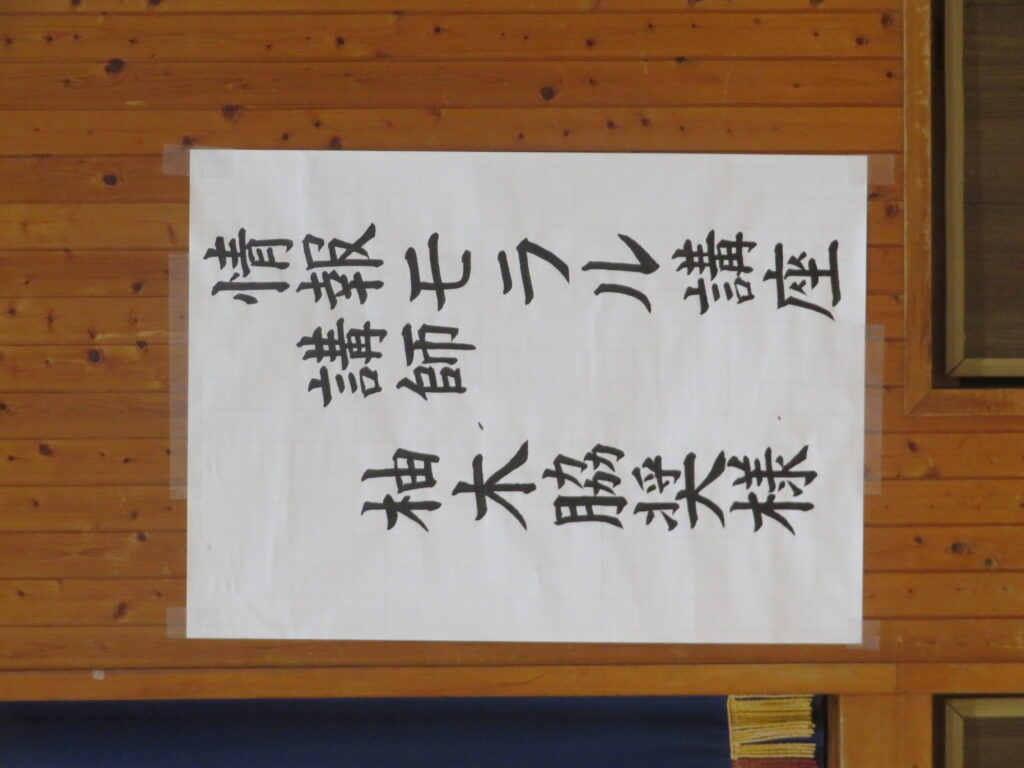 情報モラル講座
講師
柚木脇奨様